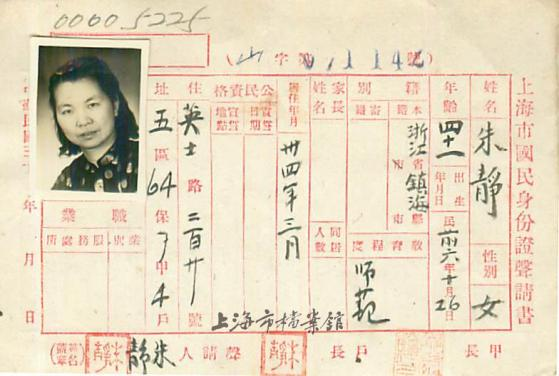 00005225
上海市國民身份證聲請書
姓名 朱靜 性別 女
年齡 四十一 出生年月日 民前六年十月26日
籍別 本籍 浙江省鎮海縣市
寄籍 省縣市
教育程度 師範
家長姓名
同居人數
居住年月 卅四年三月
公民資格 宣誓日期 宣誓地點
住址 英士路二百廿號
五區64保甲4戶
職業
業別 服務處所
年月日
甲長
戶長
聲請人 朱靜
簽名蓋章
上海市檔案館